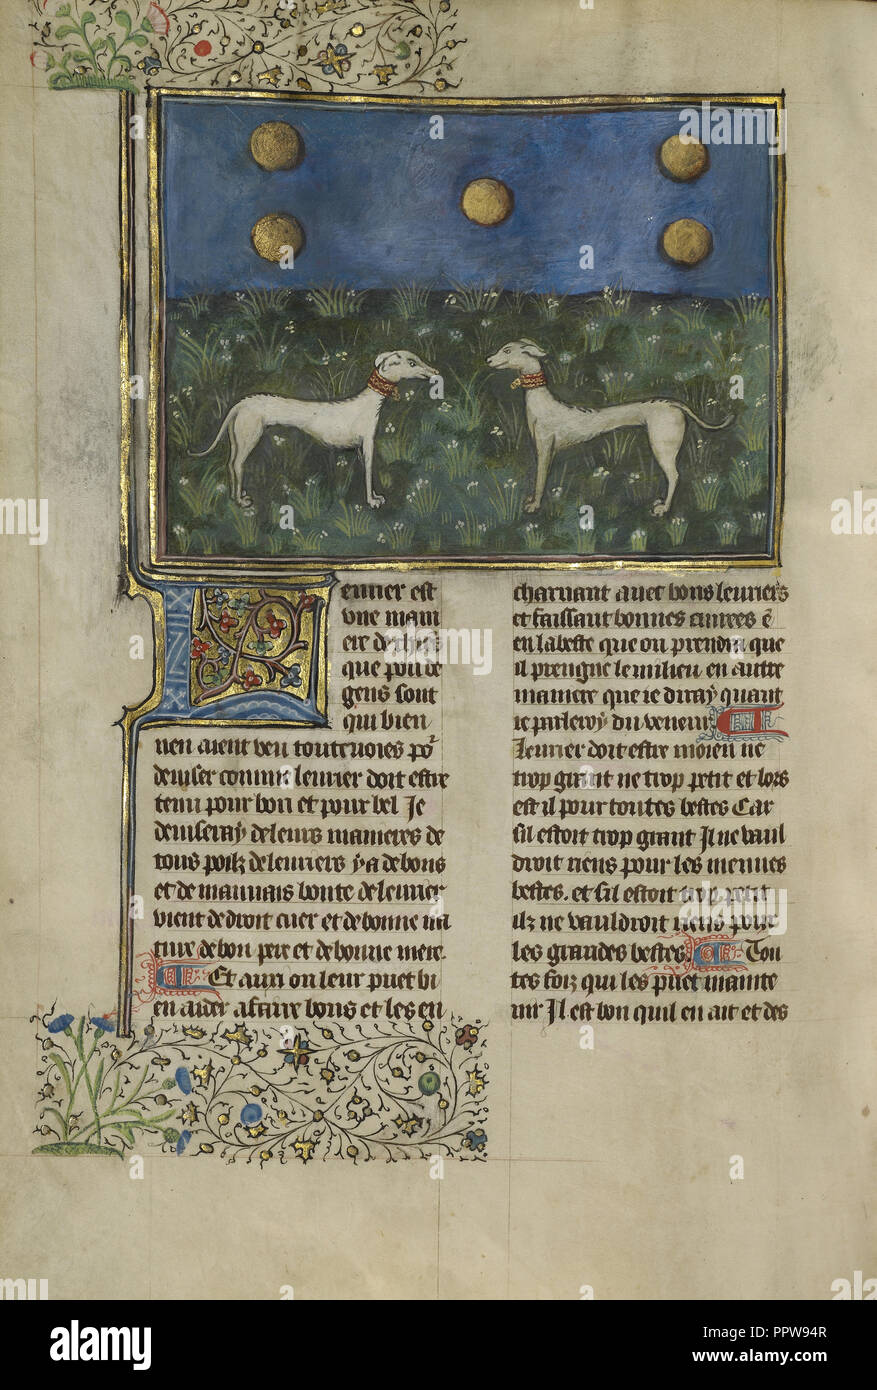 Leurier est
vne mani
ere de chiens
que pou de
gens sont
qui bien
nen aient veu toutesuoies por
deuiser comme leurier doit estre
tenu pour bon et pour bel Je
deuiseray de leurs manieres de
tous poilz de leuriers y a de bons
et de mauuais bonte de leurier
vient de droit cuer et de bonne na
ture de bon pere et de bonne mere.
Et aussi on leur puet bi
en aidier a faire bons et les en
charnant auec bons leuriers
et faissant bonnes cuirees
en la beste que on prendra que
il prengne le milieu en autre
maniere que ie diray quant
ie parleray du veneur
leurier doit estre moien ne
trop grant ne trop petit et lors
est il pour toutes bestes Car
sil estoit trop grant Il ne vaul
droit riens pour les menues
bestes. et sil estoit trop petit
ilz ne vauldroit riens pour
les grandes bestes Tou
tes foiz qui les puet mainte
nir Il est bon quil en ait et des
alamy
Image ID: PPW94R
www.alamy.com